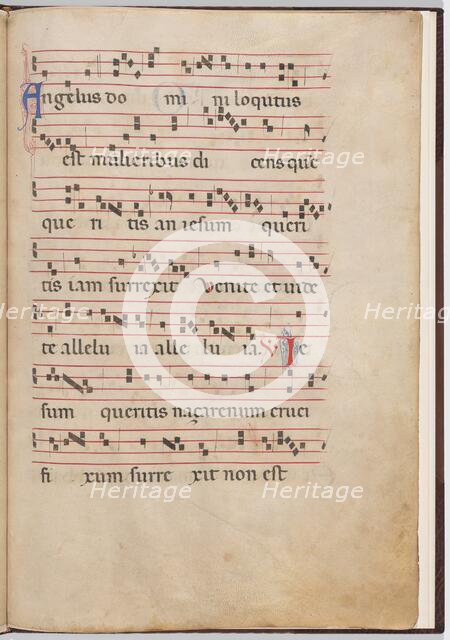 Angelus do mi ni loqutus
est mulieribus di cens que
que ri tis an iesum queri
tis iam surrexit Venite et uide
te allelu ia alle lu ia. Ie
sum queritis naçarenum cruci
fi xum surre xit non est
Heritage Heritage
Heritage Heritage
Heritage Heritage Heritage
Heritage Heritage
Heritage Heritage